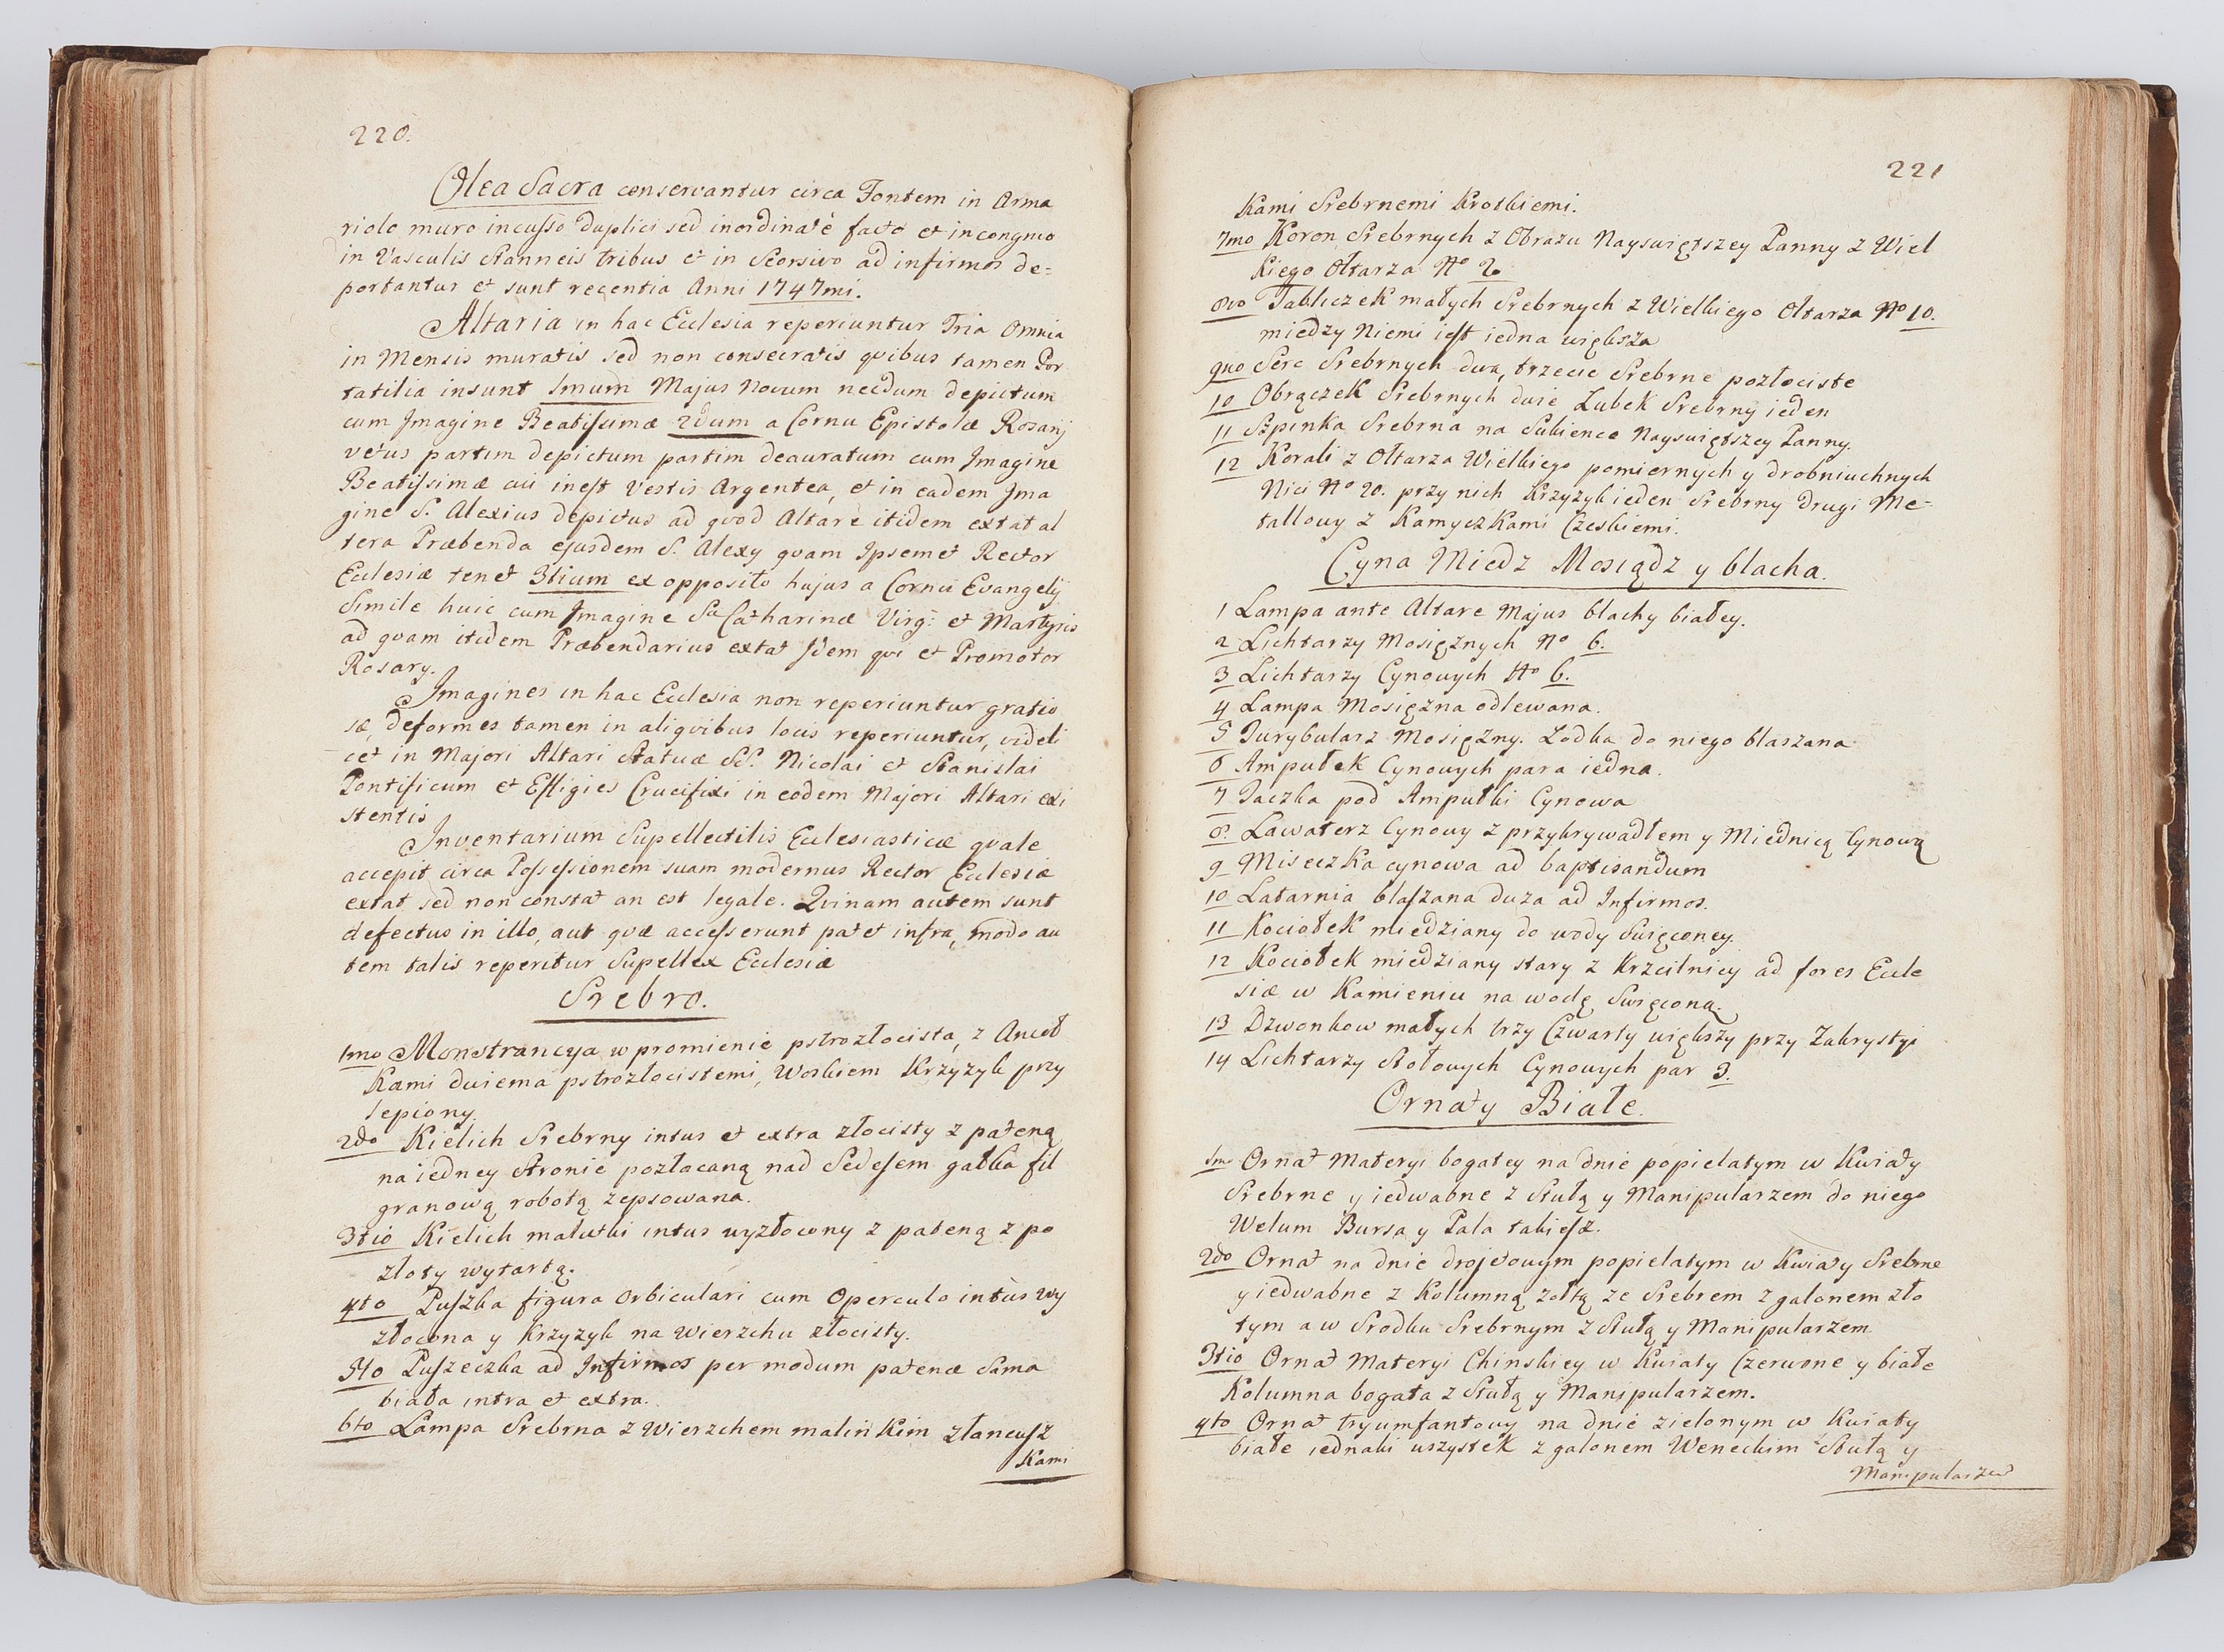 220.
Olea Sacra conservantur circa Fontem in Arma
riolo muro incusso duplici sed inordinatè facto et incongruo
in Vasculis Stanneis tribus et in Seorsivo ad infirmos de=
portantur et sunt recentia Anni 1747mi.
Altaria in hac Ecclesia reperiuntur Tria Omnia
in Mensis muratis sed non consecratis quibus tamen Por
tatilia insunt 1mum Majus Novum necdum depictum
cum Imagine Beatissimæ 2dum a Cornu Epistolæ Rosarij
vetus partim depictum partim deauratum cum Imagine
Beatissimæ cui inest Vestis Argentea, et in eadem Ima
gine S. Alexius depictus ad quod Altare itidem extat al
tera Præbenda ejusdem S. Alexy quam Ipsemet Rector
Ecclesiæ tenet 3tium ex opposito hujus a Cornu Evangelij
Simile huic cum Imagine Sæ Catharinæ Virg: et Martyris
ad quam itidem Præbendarius extat Idem qui et Promotor
Rosary.
Imagines in hac Ecclesia non reperiuntur gratio
sæ, deformes tamen in aliqvibus locis reperiuntur, videli
cet in Majori Altari Statuæ SS. Nicolai et Stanislai
Pontificum et Effigies Crucifixi in eodem Majori Altari exi
stentis
Inventarium Supellectilis Ecclesiasticæ quale
accepit circa Possessionem suam modernus Rector Ecclesiæ
extat, sed non constat an est legale. Quinam autem sunt
defectus in illo, aut quæ accesserunt patet infra, modo au
tem talis reperitur Supellex Ecclesiæ
Srebro.
1mo Monstrancya w promienie pstrozłocista, z Anioł
Kami dwiema pstrozłocistemi, Woskiem Krzyzyk przy
lepiony.
2do Kielich Srebrny intus et extra złocisty z pateną
na iedney Stronie pozłacaną nad Sedesem gałka fil
granową robotą zepsowana.
3tio Kielich malutki intus wyzłocony z pateną z po
złoty wytartą.
4to Puszka figura Orbiculari cum Operculo intùs wy
złocona y Krzyzyk na wierzchu złocisty.
5to Puszeczka ad Infirmos per modum patenæ Sama
biała intra et extra.
6to Lampa Srebrna z Wierzchem malinkim z łancusz
Kami
221
Kami Srebrnemi Krotkiemi.
7mo Koron Srebrnych z Obrazu Nayswiętszey Panny z Wiel
kiego Ołtarza No 2o
8vo Tabliczek małych Srebrnych z Wielkiego Ołtarza No 10.
miedzy Niemi iest iedna większa
9no Serc Srebrnych dwa, trzecie Srebrne pozłociste
10 Obrączek Srebrnych dwie Lubek Srebrny ieden
11 Szpinka Srebrna na Sukience Nayswiętszey Panny.
12 Korali z Ołtarza Wielkiego pomiernych y drobniuchnych
Nici No 20. przy nich Krzyzyk ieden Srebrny drugi Me=
tallowy z Kamyczkami Czeskiemi.
Cyna Miedz Mosiądz y blacha.
1 Lampa ante Altare Majus blachy białey.
2 Lichtarzy Mosięznych No 6.
3 Lichtarzy Cynowych No 6.
4 Lampa Mosięzna odlewana.
5 Turybularz Mosięzny. Lodka do niego blaszana
6 Ampułek Cynowych para iedna.
7 Taczka pod Ampułki Cynowa
8. Lawaterz Cynowy z przykrywadłem y Miednicą Cynową
9 Miseczka cynowa ad baptisandum
10 Latarnia blaszana duza ad Infirmos.
11 Kociołek miedziany do wody Swięconey.
12 Kociołek miedziany stary z Krzcilnicy ad fores Eccle
siæ w Kamieniu na wodę Swięconą.
13 Dzwonkow małych trzy Czwarty większy przy Zakrystyi
14 Lichtarzy Stołowych Cynowych par 3.
Ornaty Białe.
1mo Ornat Materyi bogatey na dnie popielatym w Kwiaty
Srebrne y iedwabne z Stułą y Manipularzem do niego
Welum Bursa y Pala takiesz.
2do Ornat na dnie drojetowym popielatym w Kwiaty Srebrne
y iedwabne z Kolumną zołtą ze Srebrem z galonem zło
tym a w Srodku Srebrnym z Stułą y Manipularzem
3tio Ornat Materyi Chinskiey w Kwiaty Czerwone y białe
Kolumna bogata z Stułą y Manipularzem.
4to Ornat tryumfantowy na dnie zielonym w Kwiaty
białe iednaki wszystek z galonem Weneckim Stułą y
Manipularzem